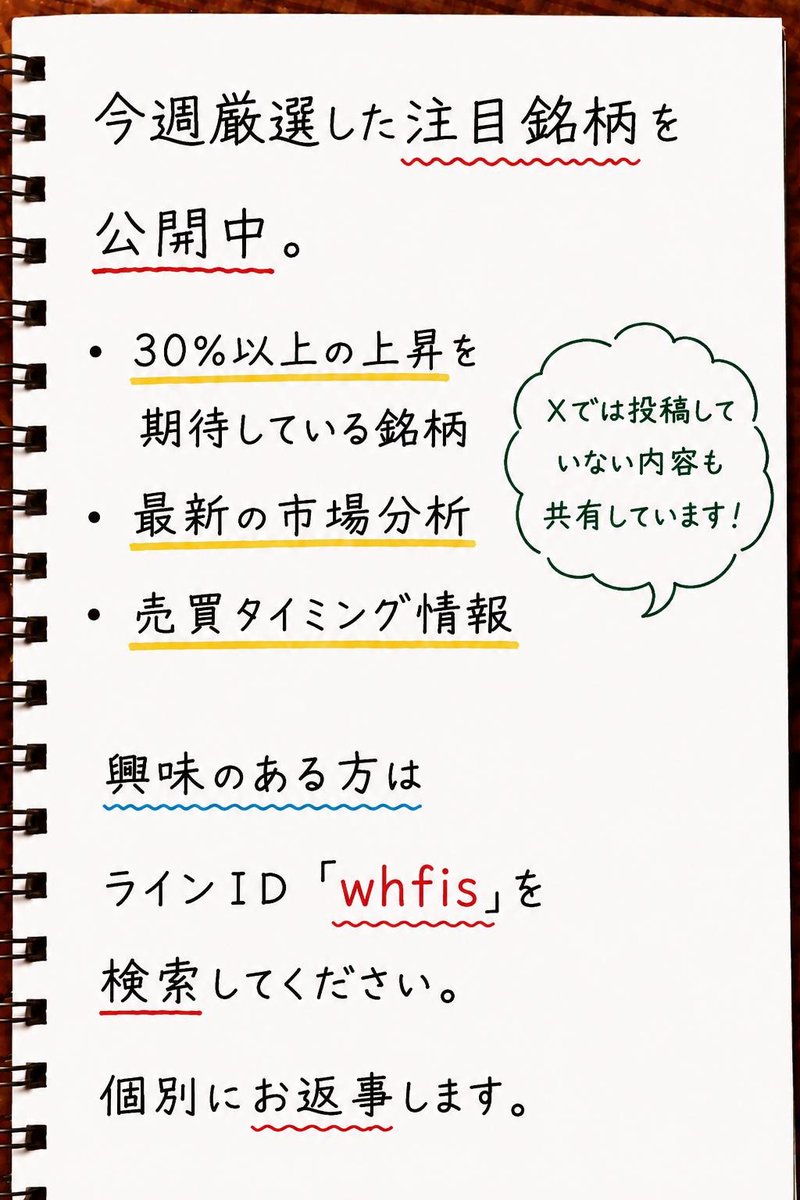 今週厳選した注目銘柄を
公開中。
• 30%以上の上昇を
期待している銘柄
• 最新の市場分析
• 売買タイミング情報
Xでは投稿して
いない内容も
共有しています!
興味のある方は
ラインID「whfis」を
検索してください。
個別にお返事します。